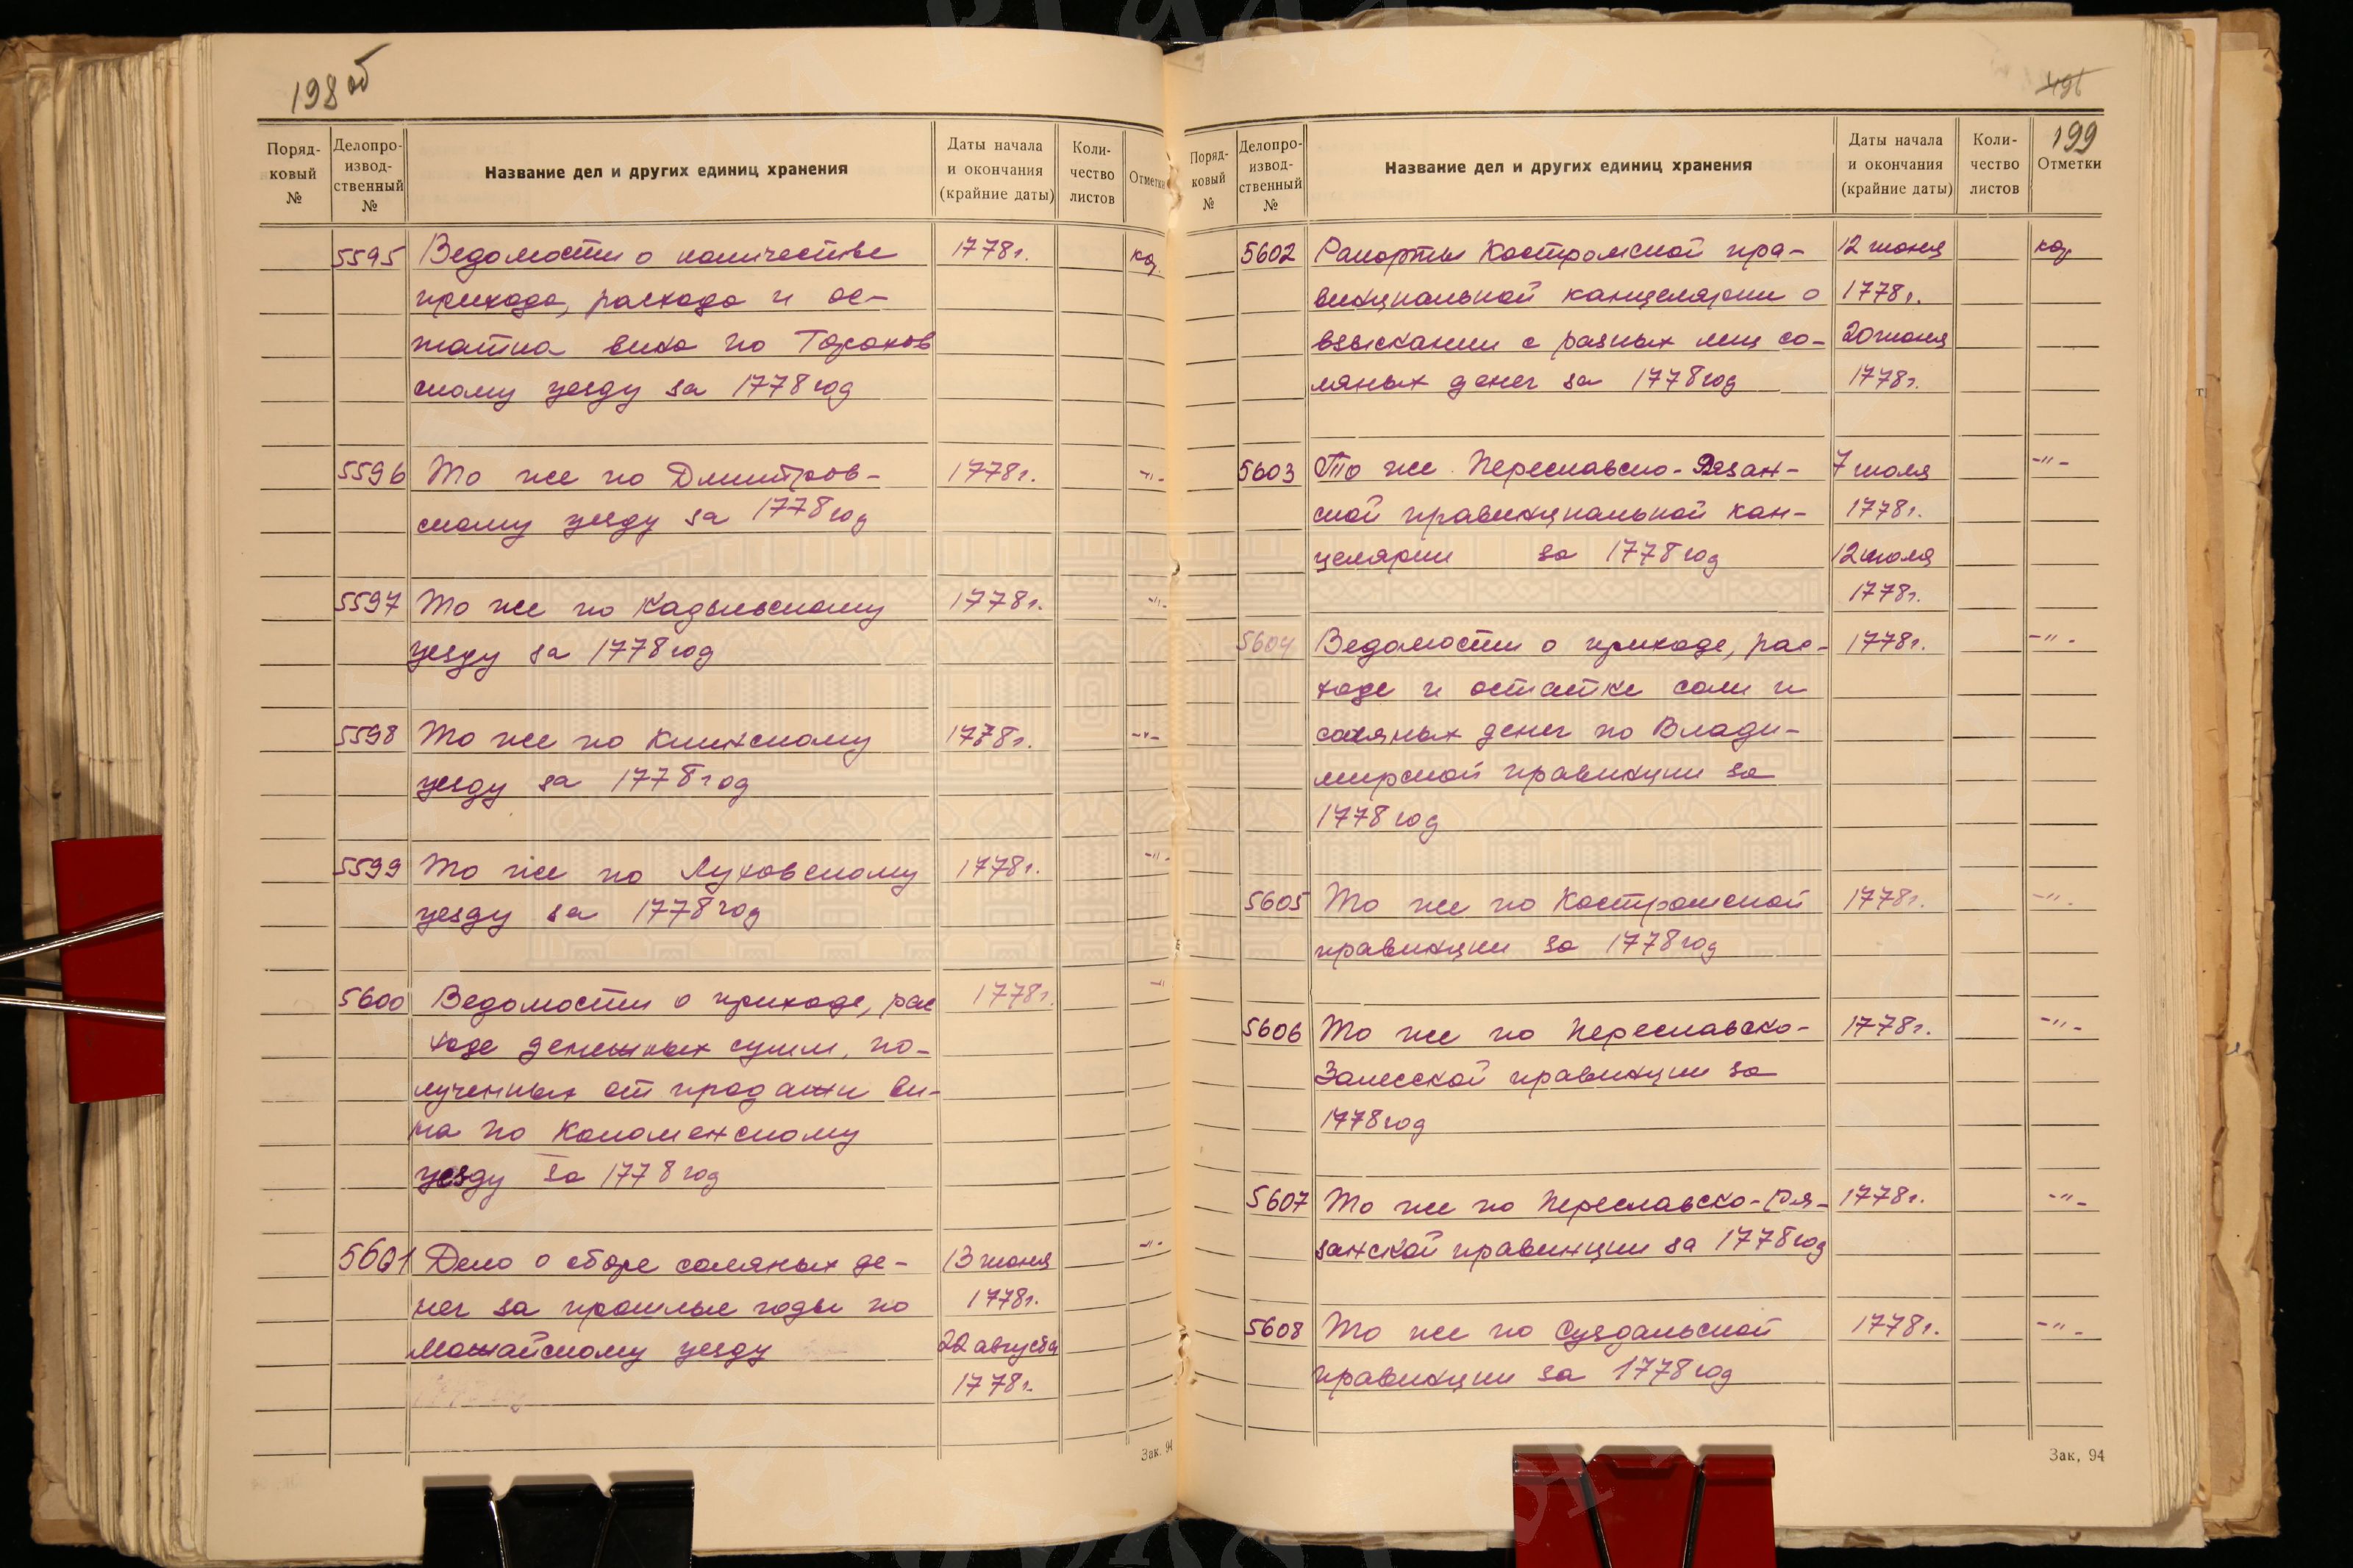 198 об
Поряд-
ковый
№
Делопро-
извод-
ственный
№
Название дел и других единиц хранения
Даты начала
и окончания
(крайние даты)
Коли-
чество
листов
Отметки
5595 Ведомости о количестве 1778г.
прихода, расхода и ос-
татка вина по Горохов
скому уезду за 1778 год
5596 То же по Дмитров- 1778г. -"-
скому уезду за 1778 год
5597 То же по Кадыевскому 1778г. -"-
уезду за 1778 год
5598 То же по Клинскому 1778г. -"-
уезду за 1778 год
5599 То же по Луховскому 1778г. -"-
уезду за 1778 год
5600 Ведомости о приходе, рас 1778г. -"-
ходе денежных сумм, по-
лученных от продажи ви-
на по Коломенскому
уезду за 1778 год
5601 Дело о сборе соляных де- 13 июня -"-
нег за прошлые годы по 1778г.
Можайскому уезду 22 августа
1778г.
Зак. 94
199
Поряд-
ковый
№
Делопро-
извод-
ственный
№
Название дел и других единиц хранения
Даты начала
и окончания
(крайние даты)
Коли-
чество
листов
Отметки
5602 Рапорты Костромской про- 12 июня
винциальной канцелярии о 1778г.
взыскании с разных лиц со- 20 июня
ляных денег за 1778 год 1778г.
5603 То же Переславско-Рязан- 7 июля -"-
ской правинциальной кан- 1778г.
целярии за 1778 год 12 июля
1778г.
5604 Ведомости о приходе, рас- 1778г. -"-
ходе и остатке соли и
соляных денег по Влади-
мирской правинции за
1778 год
5605 То же по Костромской 1778г. -"-
правинции за 1778 год
5606 То же по Переславско- 1778г. -"-
Залесской правинции за
1778 год
5607 То же по Переславско-Ря- 1778г. -"-
занской правинции за 1778 год
5608 То же по Суздальской 1778г. -"-
правинции за 1778 год
Зак. 94